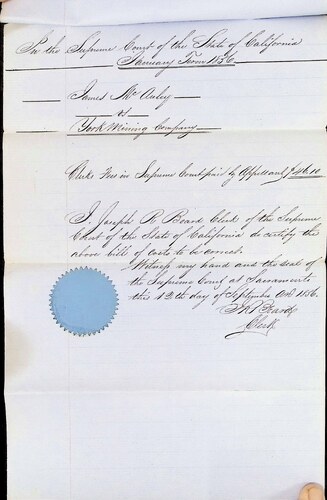 In the Supreme Court of the State of California
January Term 1856
James McAuley
vs
York Mining Company
Clerks Fees in Supreme Court paid by Appellant $46.10
I Joseph R Beard Clerk of the Supreme
Court of the State of California do certify the
above bill of costs to be correct.
Witness my hand and the seal of
the Supreme Court at Sacramento
this 12th day of September A.D. 1856.
J R Beard
Clerk